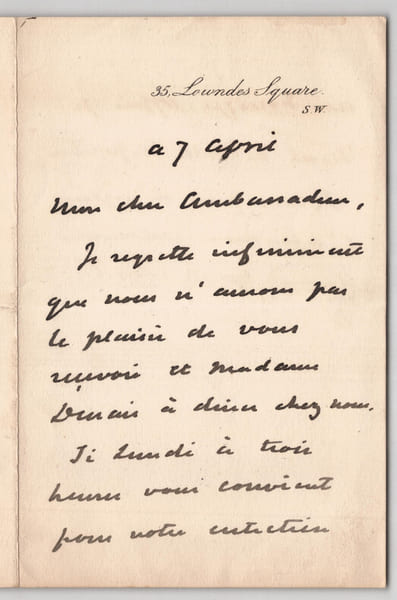 35, Lowndes Square.
S.W.
a 7 April
Mon cher Ambassadeur,
Je regrette infiniment
que nous n'aurons pas
le plaisir de vous
recevoir et Madame
à diner chez nous.
Si Lundi à trois
heures vous convient
pour notre entretien